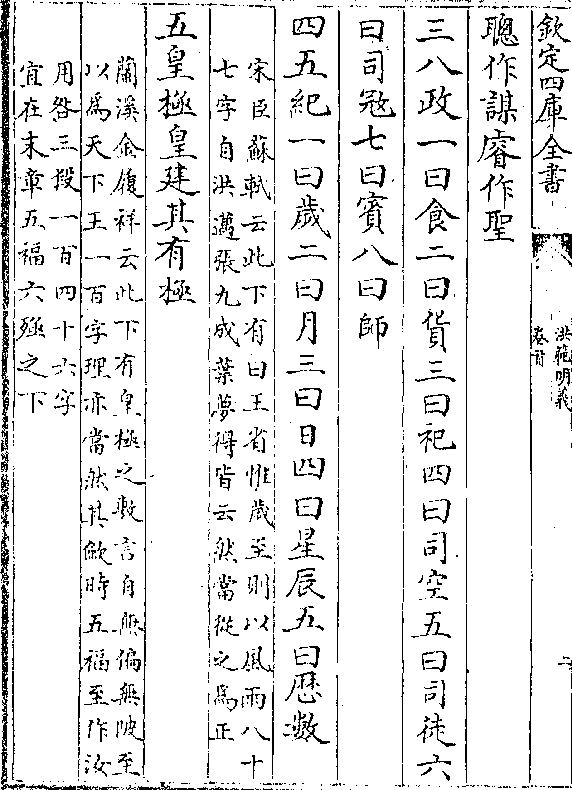 欽定四庫全書
洪範明義
卷首
二
聰作謀睿作聖
三八政一曰食二曰貨三曰祀四曰司空五曰司徒六
曰司冦七曰賓八曰師
四五紀一曰歲二曰月三曰日四曰星辰五曰厯數
宋臣蘇軾云此下有曰王省惟歲至則以風雨八十
七字自洪邁張九成葉夢得皆云然當從之為正
五皇極皇建其有極
蘭溪金履祥云此下有皇極之敷言自無偏無陂至
以為天下王一百字理亦當然其歛時五福至作汝
用咎三段一百四十六字
宜在末章五福六殛之下